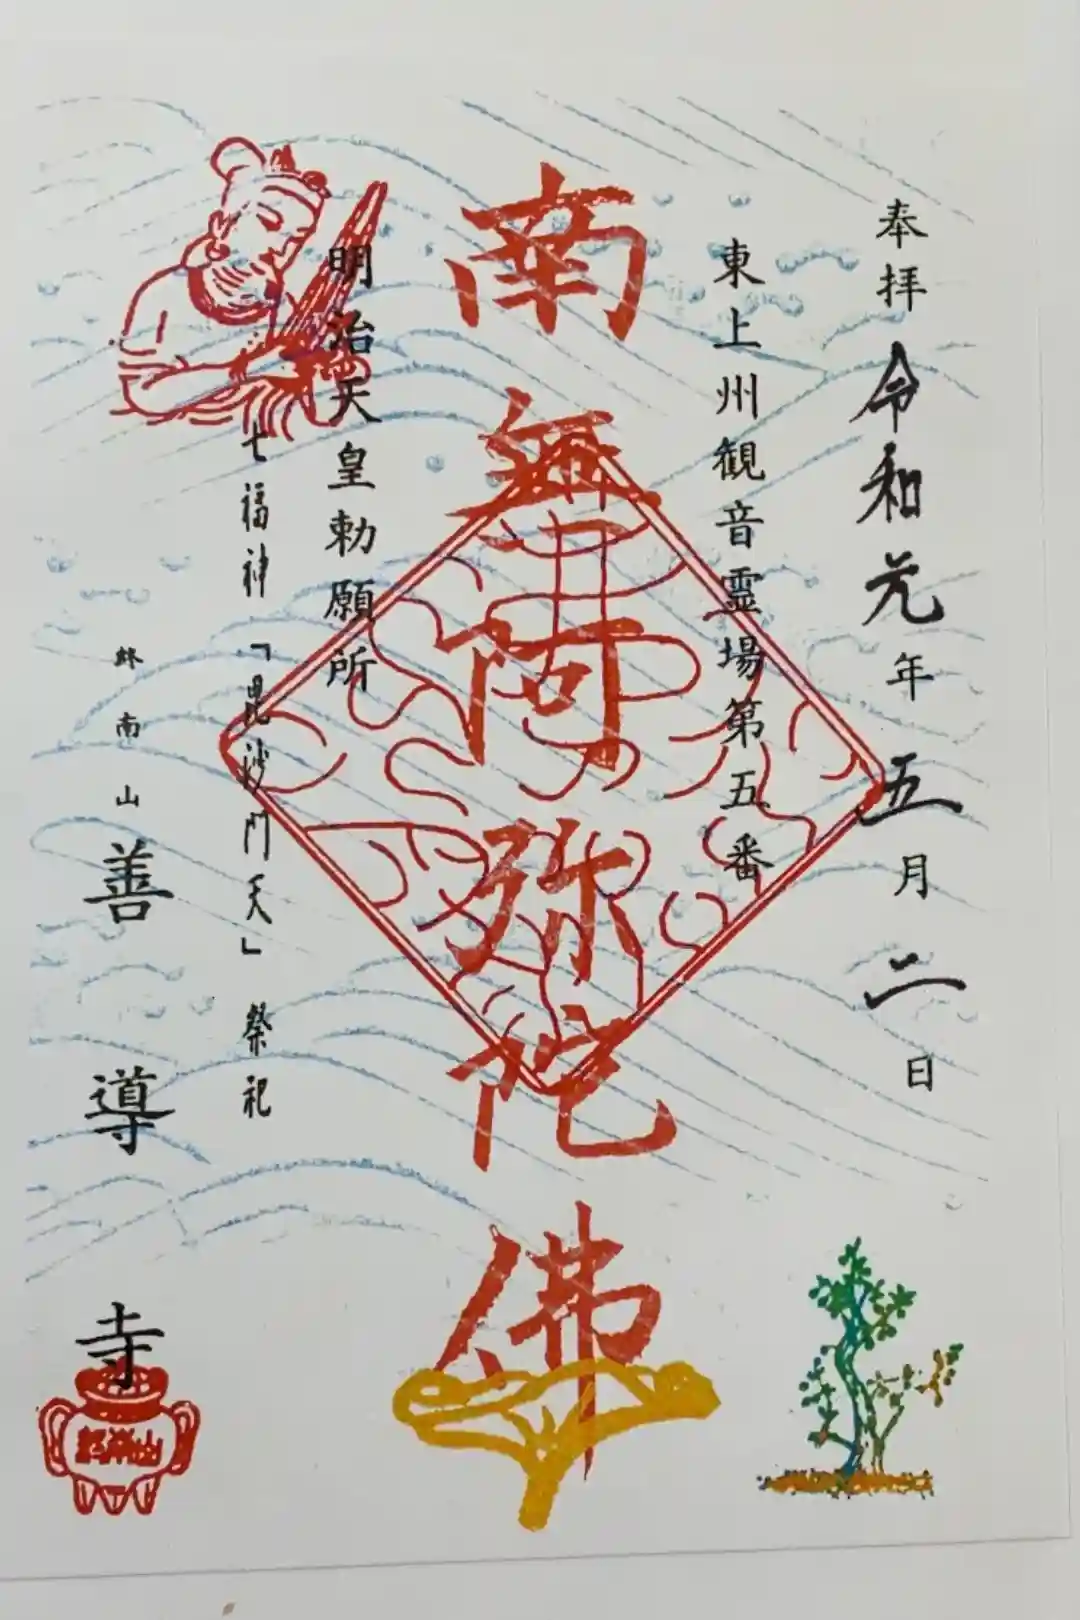 奉拝 令和元年五月二日
東上州観音霊場第五番
南無阿弥陀佛
明治天皇勅願所
七福神「毘沙門天」祭祀
終南山善導寺